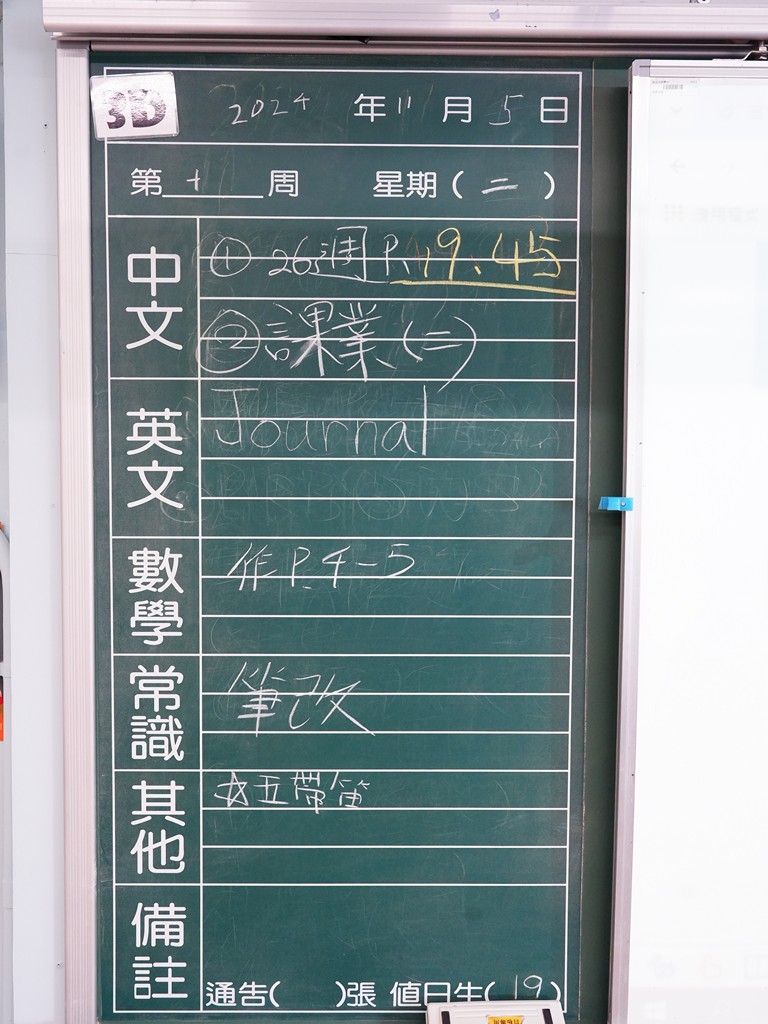 3D
2024 年 11 月 5 日
第 十 周 星期 ( 二 )
中文
① 26週 P. 19、45
② 課業 (二)
英文
Journal
數學
作 P. 4-5
常識
筆改
其他
☆五帶笛
備註
通告( )張 值日生( 19 )